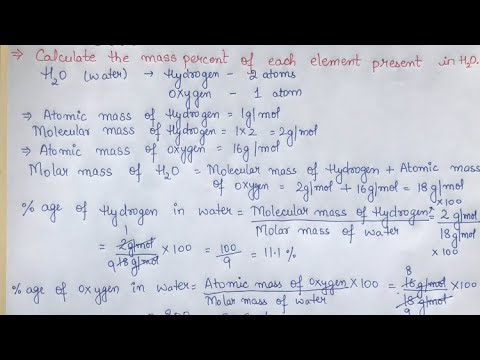 ⇒ Calculate the mass percent of each element present in H₂O.
H₂O (water) → Hydrogen - 2 atoms
Oxygen - 1 atom
⇒ Atomic mass of Hydrogen = 1g/mol
Molecular mass of Hydrogen = 1×2 = 2g/mol
⇒ Atomic mass of Oxygen = 16g/mol
Molar mass of H₂O = Molecular mass of Hydrogen + Atomic mass
of Oxygen = 2g/mol + 16g/mol = 18g/mol
% age of Hydrogen in water = Molecular mass of Hydrogen / Molar mass of water × 100 = 2g/mol / 18g/mol × 100
= 1 2g/mol / 9 18g/mol × 100 = 100/9 = 11.1 %
% age of Oxygen in water = Atomic mass of Oxygen / Molar mass of water × 100 = 8 16g/mol / 18g/mol 9 × 100